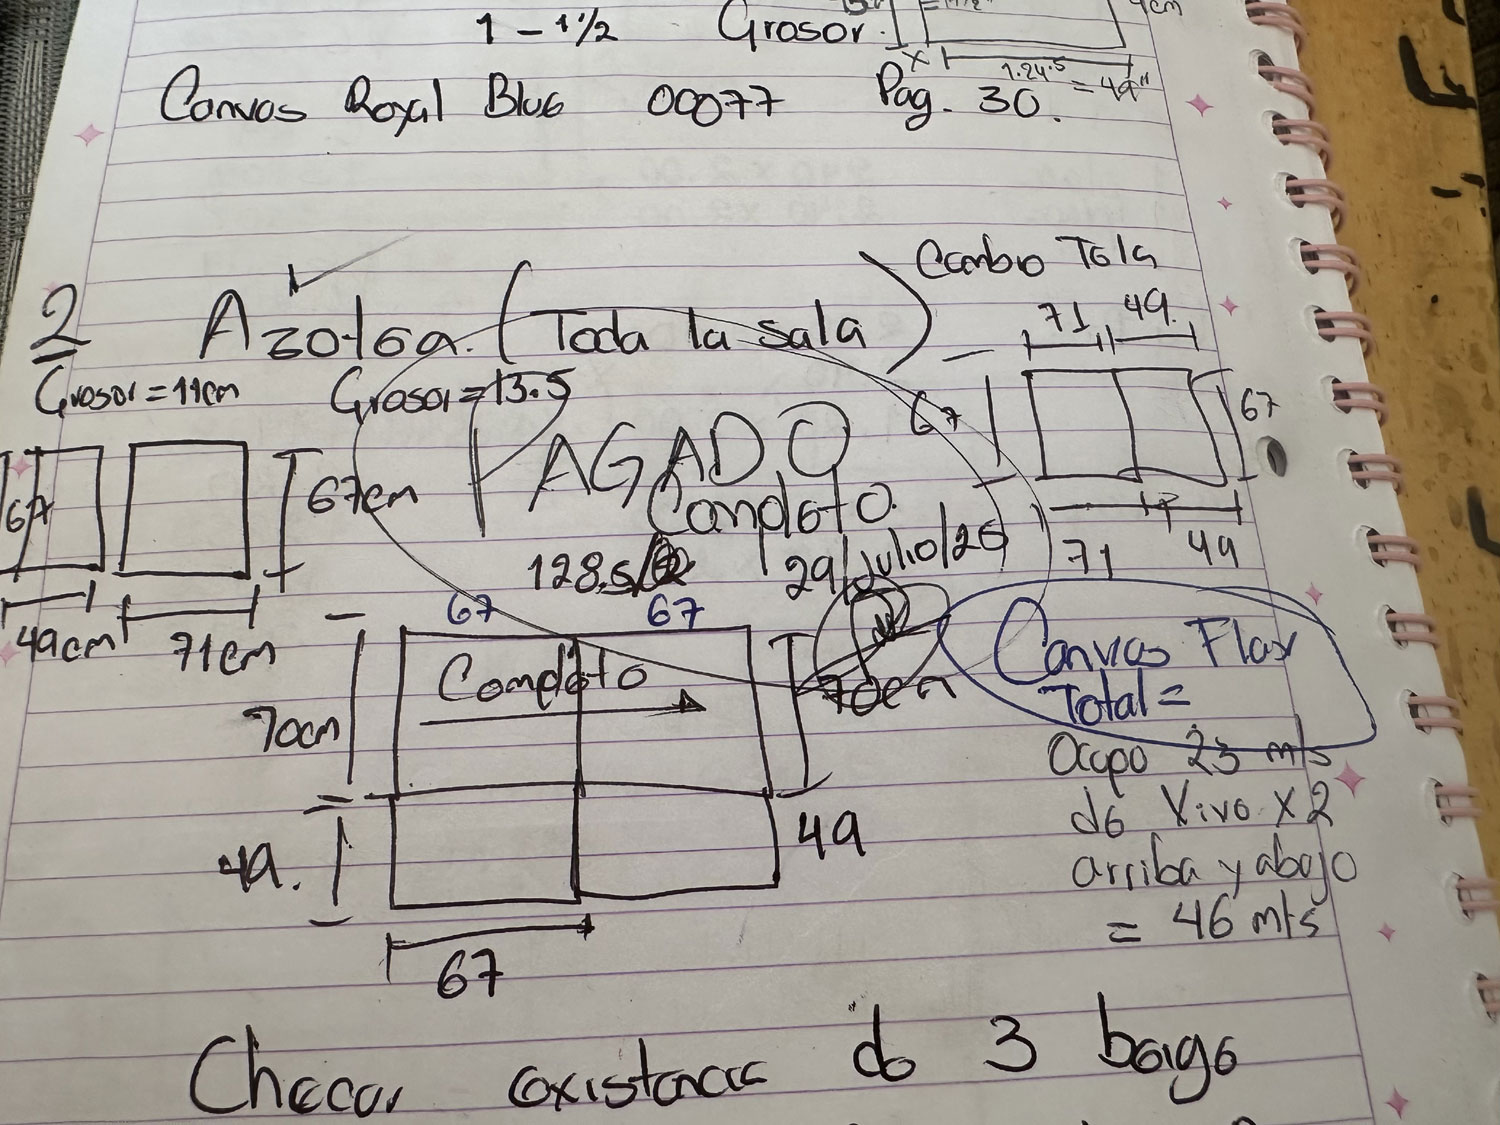 1 - 1 1/2 Grosor.
1.24.5 = 49"
Canvas Royal Blue 00077 Pag. 30.
Cambio Tela
2 Azotea. (Toda la sala)
71 49.
Grosor = 11cm Grosor = 13.5
67 67
PAGADO
Completo.
67 67cm
128.5 29/julio/26
71 49
49cm 71cm
67 67
Canvas Flax
Total =
Completo
70cm 70cm
Ocupo 23 mts
de Vivo x2
arriba y abajo
= 46 mts
49. 49
67
Checar existencia de 3 beige